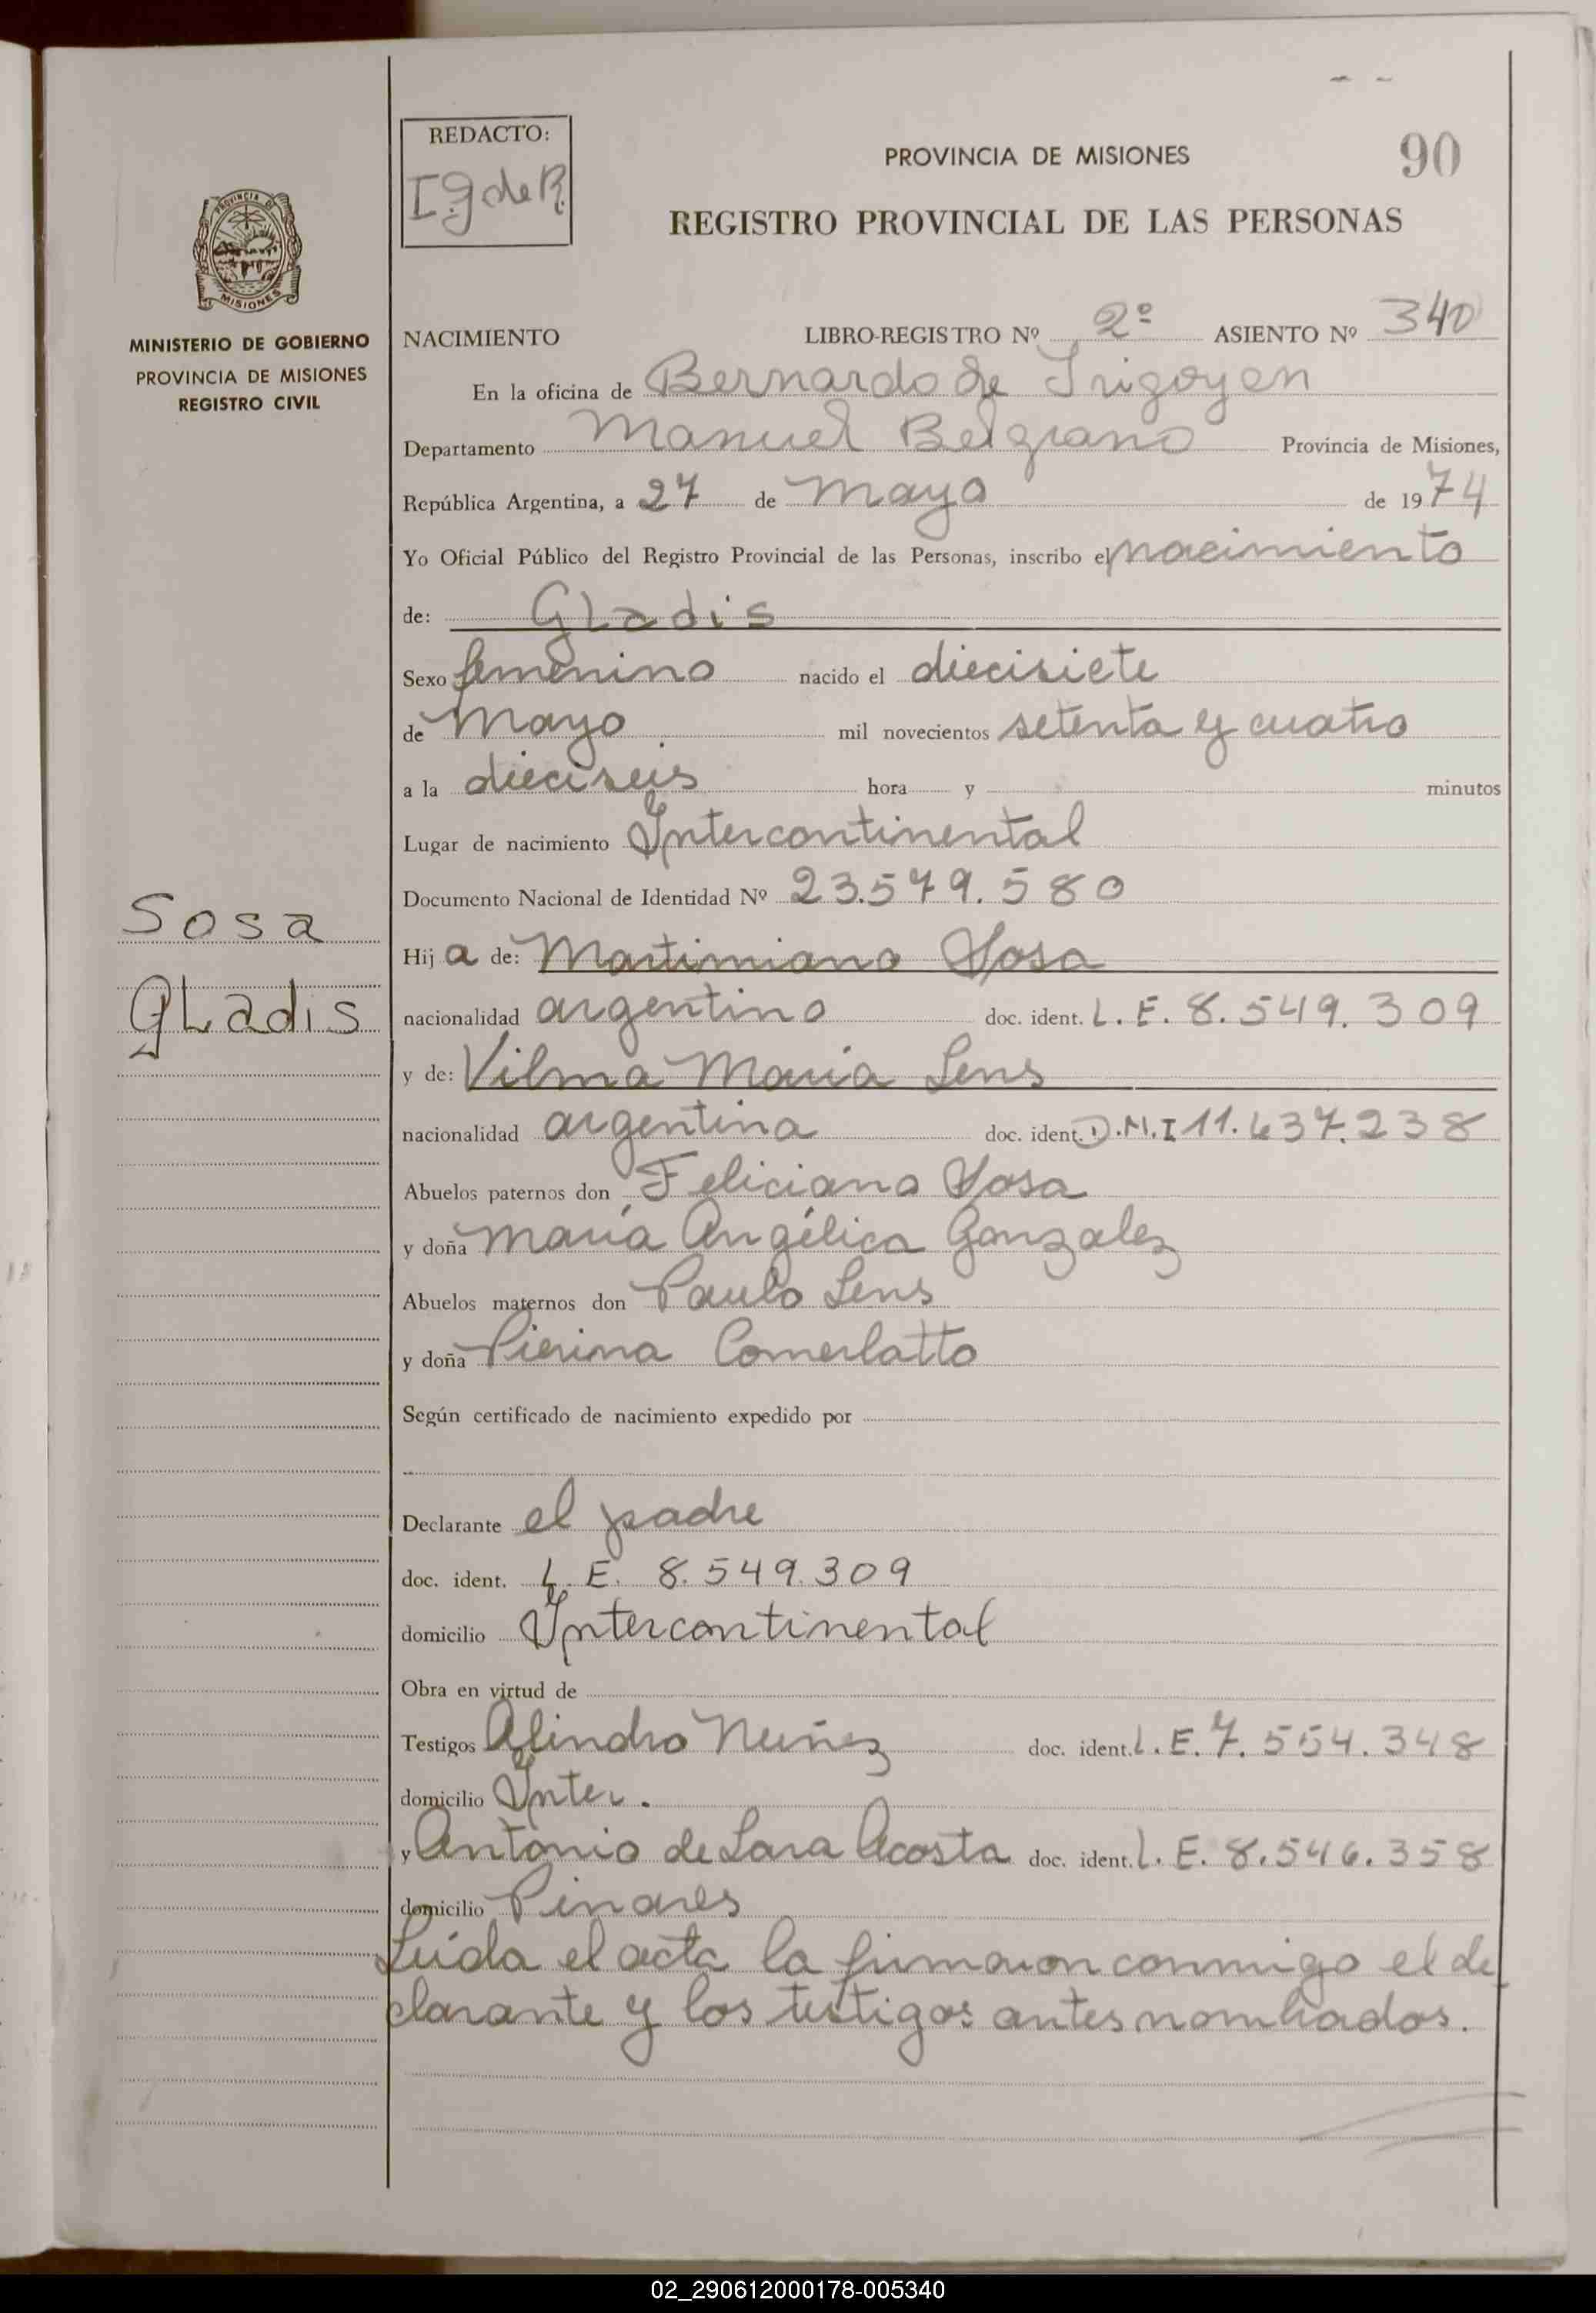 REDACTO:
I g de R.
PROVINCIA DE MISIONES
90
REGISTRO PROVINCIAL DE LAS PERSONAS
PROVINCIA DE
MISIONES
MINISTERIO DE GOBIERNO
PROVINCIA DE MISIONES
REGISTRO CIVIL
NACIMIENTO LIBRO-REGISTRO Nº 2º ASIENTO Nº 340
En la oficina de Bernardo de Irigoyen
Departamento Manuel Belgrano Provincia de Misiones,
República Argentina, a 27 de mayo de 1974
Yo Oficial Público del Registro Provincial de las Personas, inscribo el nacimiento
de: Gladis
Sexo femenino nacido el diecisiete
de Mayo mil novecientos setenta y cuatro
a la dieciseis hora y minutos
Lugar de nacimiento Intercontinental
Documento Nacional de Identidad Nº 23.579.580
Sosa
Gladis
Hija de: Martimiano Sosa
nacionalidad argentino doc. ident. L. E. 8.549.309
y de: Vilma Maria Lens
nacionalidad argentina doc. ident. D.N.I 11.637.238
Abuelos paternos don Feliciano Sosa
y doña María Angélica Gonzalez
Abuelos maternos don Paulo Lens
y doña Pierina Comerlatto
Según certificado de nacimiento expedido por
Declarante el padre
doc. ident. L. E. 8.549.309
domicilio Intercontinental
Obra en virtud de
Testigos Alindro Nuñez doc. ident. L. E. 7.554.348
domicilio Inter.
y Antonio de Lara Acosta doc. ident. L. E. 8.546.358
domicilio Pinares
Leída el acta la firmaron conmigo el de
clarante y los testigos antes nombrados.
02_290612000178-005340